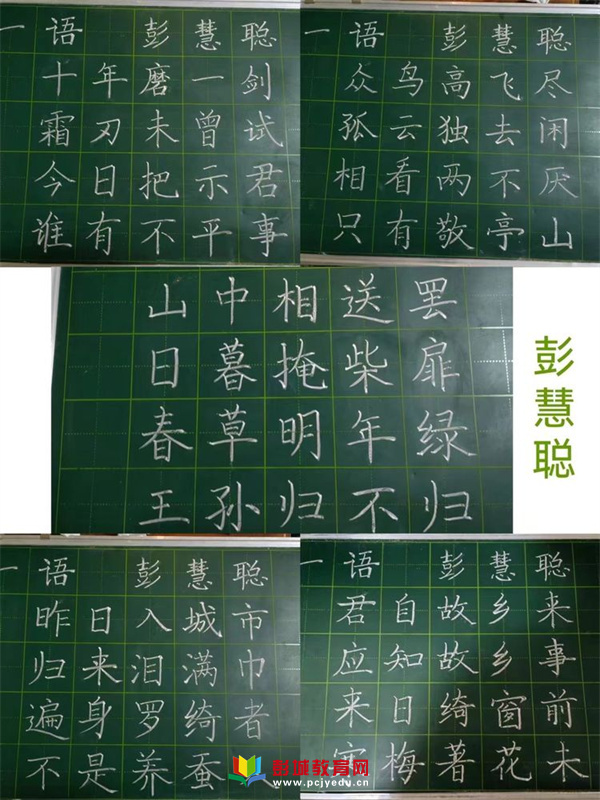 一语 彭慧聪
十年磨一剑
霜刃未曾试
今日把示君
谁有不平事
一语 彭慧聪
众鸟高飞尽
孤云独去闲
相看两不厌
只有敬亭山
山中相送罢
日暮掩柴扉
春草明年绿
王孙归不归
彭慧聪
一语 彭慧聪
昨日入城市
归来泪满巾
遍身罗绮者
不是养蚕
一语 彭慧聪
君自故乡来
应知故乡事
来日绮窗前
梅著花未
彭城教育网
www.pcjyedu.cn